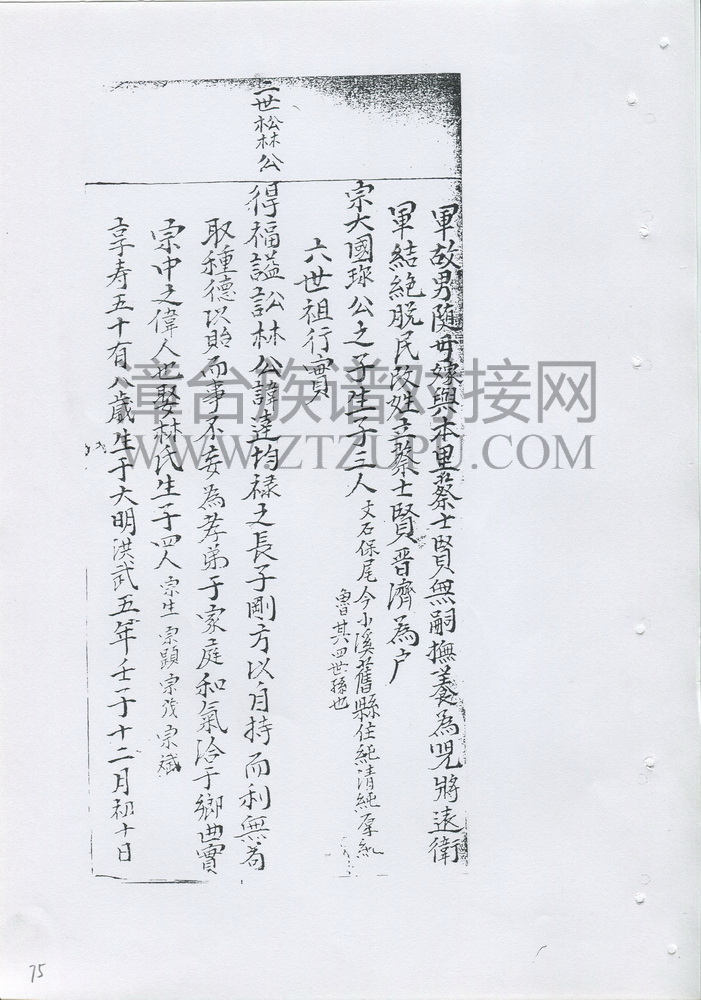 軍故男随母嫁與本里蔡士賢無嗣撫養為兒將遠衛
軍結絶脱民改姓立蔡士賢晋濟為户
宗大國珎公之子生子三人 文石保尾今小溪舊縣住純清純厚純
魯其四世孫也
六世祖行實
三世松林公
得福謚訟林公諱達均禄之長子剛方以自持而利無苟
取種德以貽而事不妄為孝弟于家庭和氣洽于鄉曲實
宗中之偉人也娶林氏生子四人 宗生 宗顕 宗茂 宗斌
享寿五十有八歲生于大明洪武五年壬子十二月初十日
章台族谱对接网
WWW.ZTZUPU.COM
75